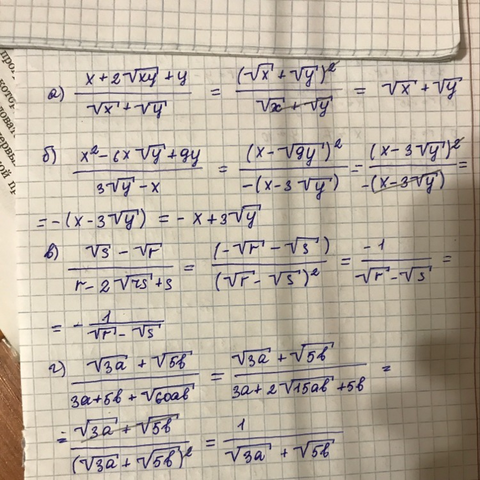 а) (x + 2√xy + y)/(√x + √y) = (√x + √y)²/(√x + √y) = √x + √y
б) (x² - 6x√y + 9y)/(3√y - x) = (x - √9y)²/(-(x - 3√y)) = (x - 3√y)²/(-(x - 3√y)) =
= -(x - 3√y) = -x + 3√y
в) (√s - √r)/(r - 2√rs + s) = (-√r - √s)/(√r - √s)² = -1/(√r - √s) =
= - 1/(√r - √s)
г) (√3a + √5b)/(3a + 5b + √60ab) = (√3a + √5b)/(3a + 2√15ab + 5b) =
= (√3a + √5b)/(√3a + √5b)² = 1/(√3a + √5b)